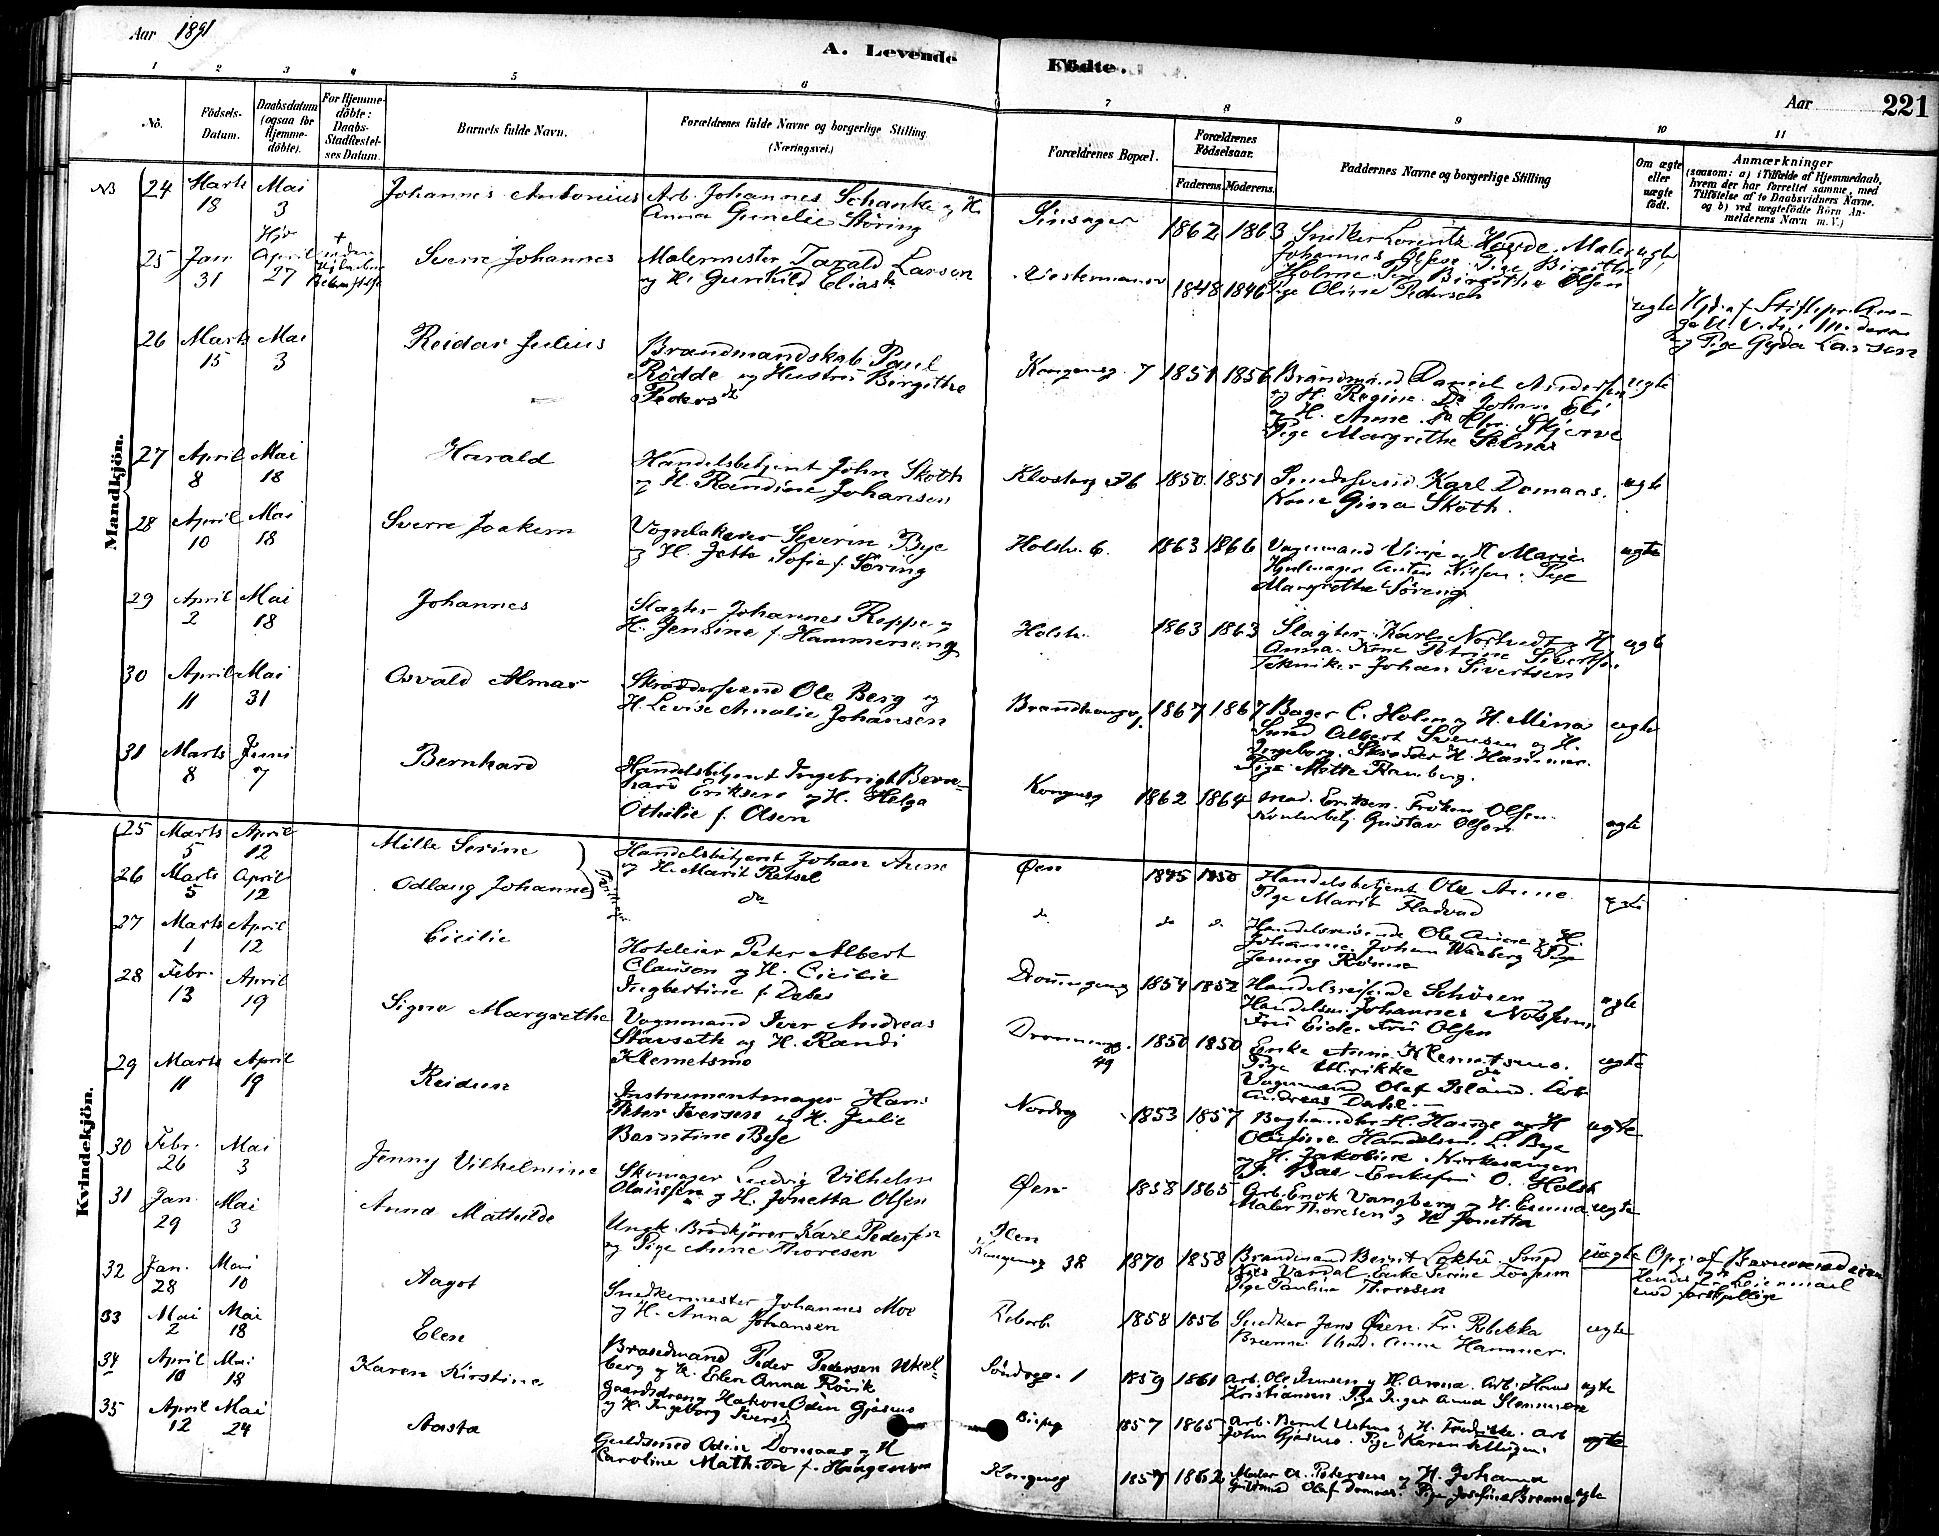 Aar 1891
A. Levende
Födte.
Aar 221
1 2 3 4 5 6 7 8 9 10 11
No.
Födsels-
Datum.
Daabsdatum
(ogsaa för
Hjemme-
döbte).
For Hjemme-
döbte:
Daabs-
Stadfæstel-
ses Datum.
Barnets fulde Navn.
Forældrenes fulde Navne og borgerlige Stilling
(Næringsvei.)
Forældrenes Bopæl.
Forældrenes
Födselsaar.
Faderens. Moderens.
Faddernes Navne og borgerlige Stilling
Om ægte
eller
uægte
født.
Anmærkninger
(saasom: a) i Tilfælde af Hjemmedaab,
hvem der har forrettet samme, med
Tilföielse af to Daabsvidners Navne.
og b) ved uægtefödte Börn An-
melderens Navn m. V.)
Mandkjön.
NB 24 Marts 18 Mai 3 Johannes Antonius
Arb. Johannes Schanke og H.
Anna Gunelie Störing
1862 1863 Snedker Lorents Hovde. Maler
Johannes Olsen. Pige Birgithe
Holme. Pige Birgitha Olsen
Pige Oline Pedersen
ægte
25 Jan. 31 Hjd April 27
Sverre Johannes
Malermester Tarald Larsen
og H. Gunhild Eliasd.
1848 1846
ægte
og Pige Gyda Larsen
26 Marts 15 Mai 3 Reidar Julius
Brandmandskab Paul
Rödde og Hustru Birgithe
Pedersd.
Kongensg. 7 1851 1856
Brandmand Daniel Andersen
og H. Regine. Do Johan
og H. Anne.
Pige Margrethe Selnæs
ægte
27 April 8 Mai 18 Harald
Handelsbetjent John Skoth
og H. Randine Johansen
Klosterg 36 1850 1851
Karl Domaas.
Kone Gina Skoth.
ægte
28 April 10 Mai 18 Sverre Joakem
Vognlakerer Severin Bye
og H. Jette Sofie f. Söring
Holstv. 6. 1863 1866
Vognmand Vinje og H Marie
Hjulmager Anton Nilsen. Pige
Margrethe Söreng
ægte
29 April 2 Mai 18 Johannes
Slagter Johannes Roppe og
H. Jensine f. Hammerseng
Holstv. 1863 1863
Slagter Karl Nortvedt og H
Anna. Kone Petrine Sivertsen.
Tekniker Johan Sivertsen
ægte
30 April 11 Mai 31 Osvald Almar
Skræddersvend Ole Berg og
H. Levise Amalie Johansen
1867 1867
Bager C. Holm og H. Mina
Smed Albert Svensen og H.
Ingeborg. Skræder H. Hammer.
Pige Mette Framberg.
ægte
31 Marts 8 Juni 7 Bernhard
Handelsbetjent Ingebrigt Bern-
hard Eriksen og H. Helga
Othilie f. Olsen
Kongensg 1862 1864
Mad. Eriksen. Fröken Olsen.
Kontorbetj. Gustav Olsen
ægte
Kvindekjön.
25 Marts 5 April 12 Mille Serine
Handelsbetjent Johan Aune
og H. Marit Retsel
Öen 1845 1850
Handelsbetjent Ole Aune.
Pige Marit Fladvad
ægte
26 Marts 5 April 12 Odlaug Johanne
do
do do do
Handelsreisende Ole Aune og H.
Johanne. Johan Waaberg Pige
Jenny Rönne
27 Marts 1 April 12 Cicilie
Hoteleier Peter Albert
Clauson og H. Cicilie
Ingbertine f. Dabes
1854 1852
Handelsreisende Schösen og
Handelsm. Johannes
Fru Eide. Fru Olsen
ægte
28 Febr. 13 April 19 Signe Margrethe
Vognmand Iver Andreas
Stavseth og H. Randi
Klemetsmo
Dronningsg. 49 1850 1850
Enke Anne Klemetsmo.
Pige Ulrikke do
Vognmand Olaf Island. Arb.
Andreas Dahl.
ægte
29 Marts 11 April 19 Reidun
Instrumentmager Hans
Peter Iversen og H. Julie
Berntine Bye
Nordreg 1853 1857
Boghandler H. Hauge og H
Olufine. Handelsm. L. Bye
og H. Jakobine. Kirkesanger
Enkefru O. Holst
ægte
30 Febr. 26 Mai 3 Jenny Vilhelmine
Skomager Ludvig Vilhelm
Olaussen og H. Jonetta Olsen
Öen 1858 1865
Arb. Enok Vangberg og H. Emma.
Maler Thoresen og H. Jonetta
ægte
31 Jan. 29 Mai 3 Anna Mathilde
Ungk. Brödkjörer Karl Pedersen
og Pige Anne Thoresen
Ilen
Kongensg 38 1870 1858
Brandmand Bernt
Nils Værdal. Enke Serine
Pige Pauline Thoresen
uægte Opg. af Barnemoderen
Hendes 2det Leiermaal
med forskjellige
32 Jan. 28 Mai 10 Aagot
Snedkermester Johannes Moe
og H. Anna Johansen
1858 1856
Snedker Jens Öien. Fr. Rebekka
Anna Hammer.
ægte
33 Mai 2 Mai 18 Elen
Brandmand Peder Pedersen Ukel-
berg og H. Elen Anna Rövik
Söndreg. 1 1859 1861
Arb. Ole Jensen og H. Anna. Arb. Hans
Kristiansen. Pige Inger Anna Stenmoen
ægte
34 April 10 Mai 18 Karen Kirstine
Gaardsdreng Hakon Odin Gjösmo
og H. Ingeborg Iversd.
1857 1865
Arb. Bernt og H. Fredrikke. Arb
John Gjösmo. Pige Karen
ægte
35 April 12 Mai 24 Aasta
Guldsmed Odin Domaas og H
Caroline Mathilde f. Haagensen
Kongensg 1857 1862
Maler A. Petersen og H. Johanna
Guldsmed Olaf Domaas. Pige Josefine Brenne
ægte